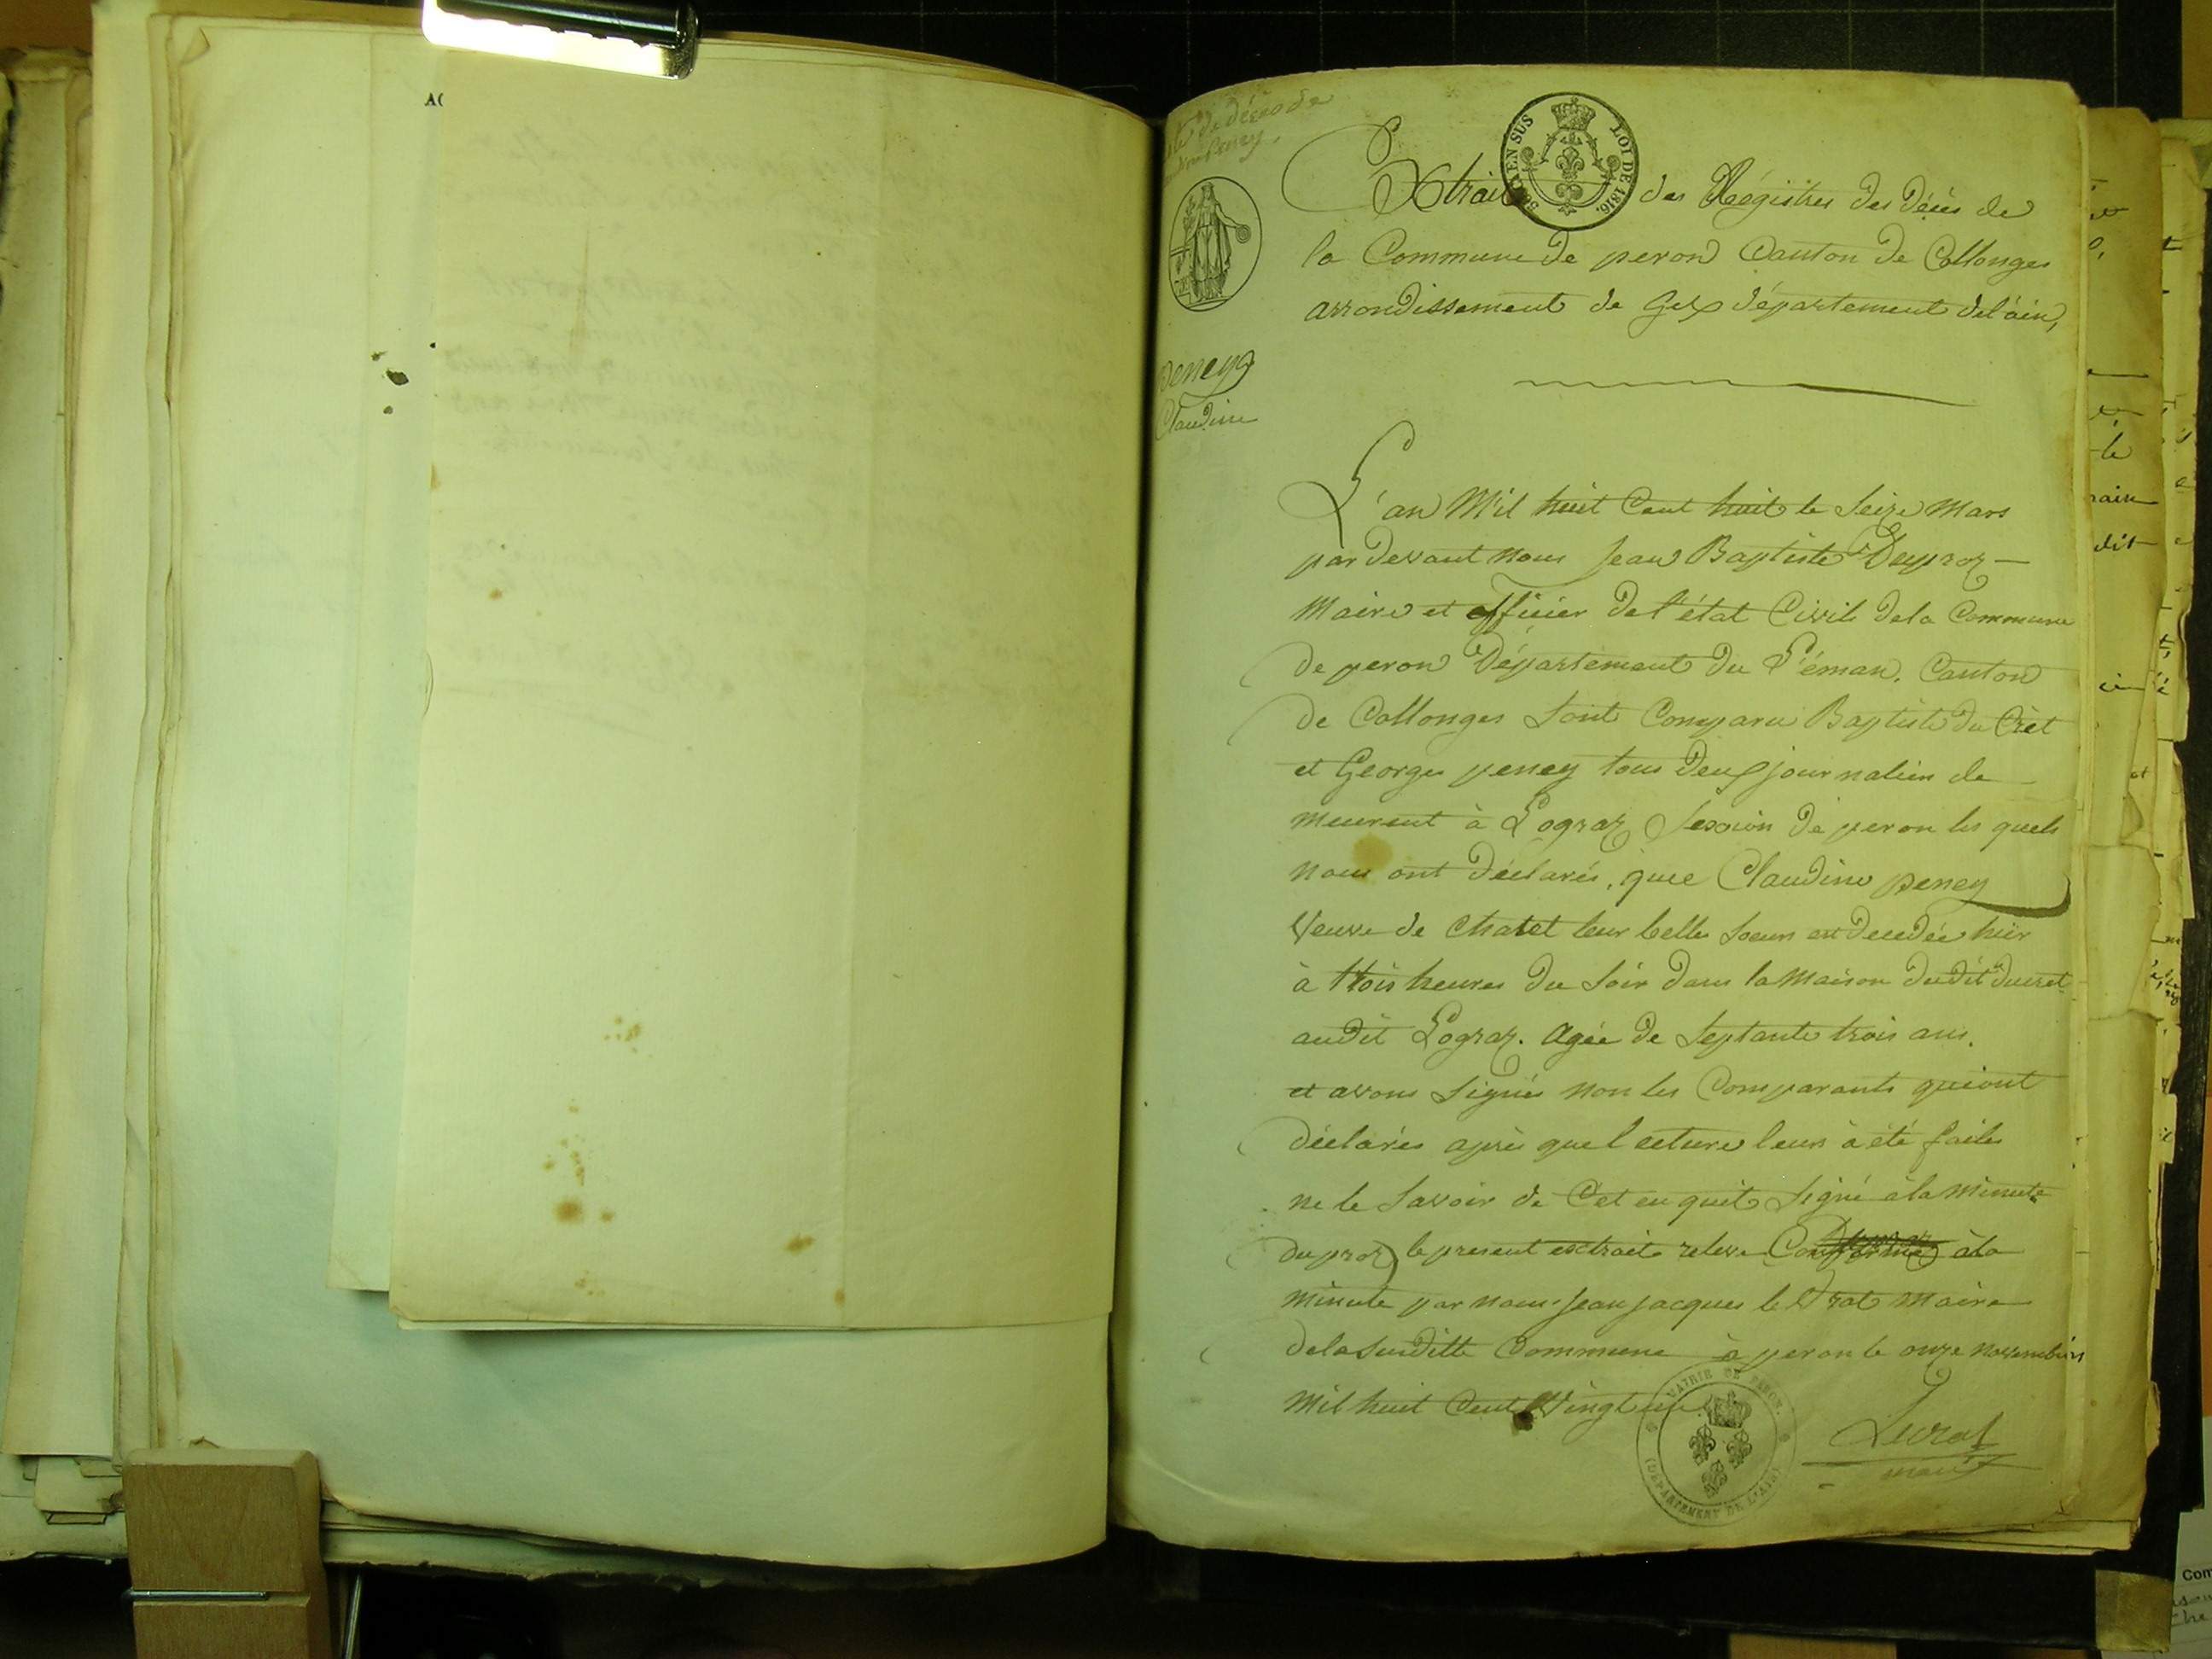 AC
de décès de
peney.
Extrait des Régistres des Décès de
la Commune de peron Canton de Collonges
arrondissement de Gex département de l'ain,
EN SUS LOI DE 1816.
peney
Claudine
L'an Mil huit Cent huit le Seize Mars
par devant nous Jean Baptiste Duproz —
Maire et officier de l'état Civil dela Commune
de peron Département du Léman. Canton
de Collonges Sont Comparu Baptiste du Crêt
et Georges peney tous deux journalier de
meurent à Lograz Section de peron les quels
nous ont déclarés, que Claudine peney
Veuve de Chatel leur belle Soeur est decedée hièr
à trois heures du Soir dans la Maison dudit ducret
audit Lograz. Agée de Septante trois ans.
et avons Signés non les Comparants qui ont
déclarés après que lecture leur à été faite
ne le Savoir de Cet enquit Signé à la Minute
duproz le present extrait releve Conforme àla
minute par nous Jean Jacques Maire
delasusditte Commune à peron le onze Novembre
Mil huit Cent Vingt
MAIRIE DE PERON.
(DÉPARTEMENT DE L'AIN)
maire
le
dit
et
Com